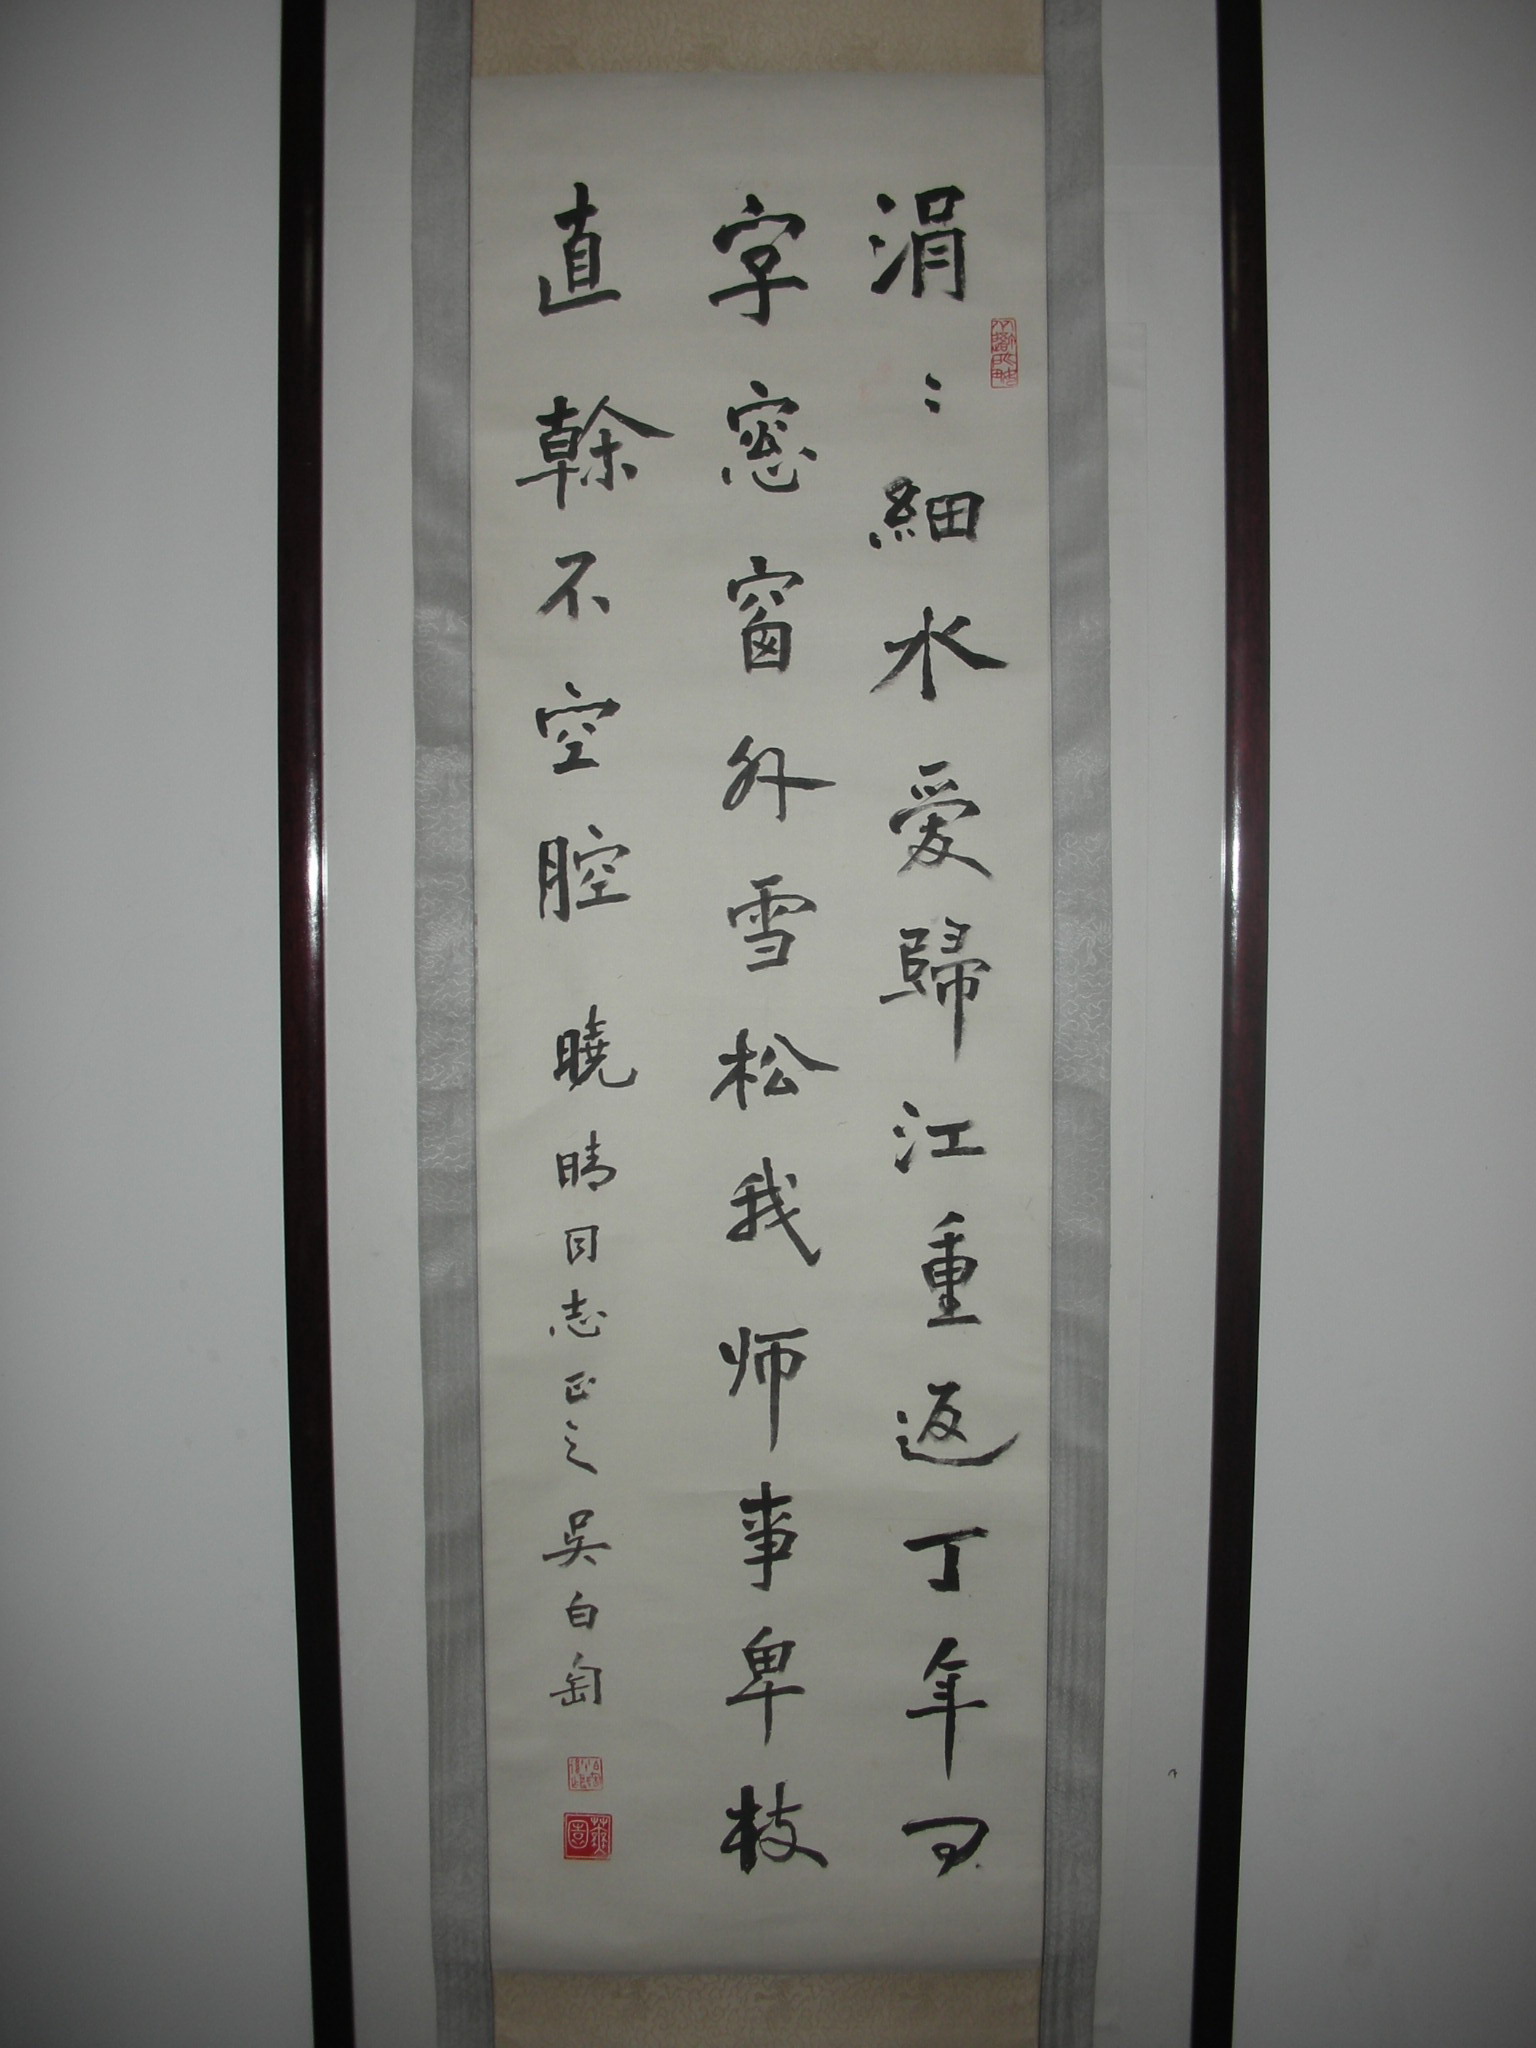 涓〻細水爱歸江重返丁年问
字窻窗外雪松我师事卑枝
直榦不空腔 曉晴同志正之 吴白匋